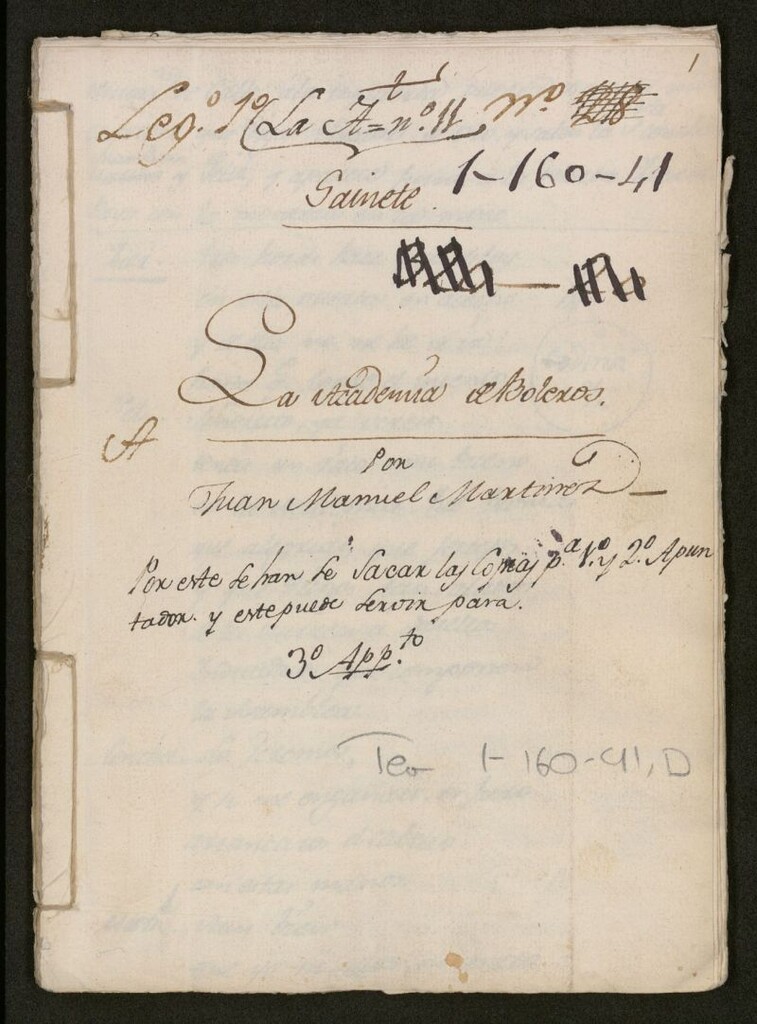 1
Leg.º 1º (La A = nº. 11 Nº
Sainete. 1-160-41
La Academia de Boleros.
A
Por
Juan Manuel Martinez
Por este se han de Sacar las Copias p.ª 1º. y 2º. Apun
tador. y este puede servir para.
3º App.to
Tea 1-160-41, D